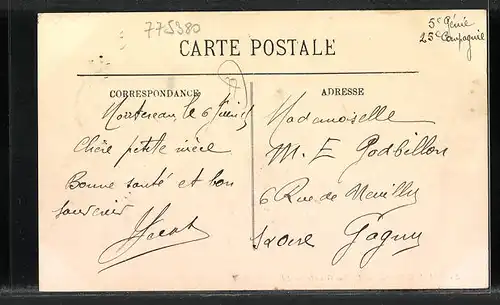 775380
5e Génie
25e Compagnie
CARTE POSTALE
CORRESPONDANCE
ADRESSE
Montereau, le 6 Juin
Chère petite nièce
Bonne santé et bon
souvenir
Mademoiselle
M. E Godbillon
6 Rue de
Gagny